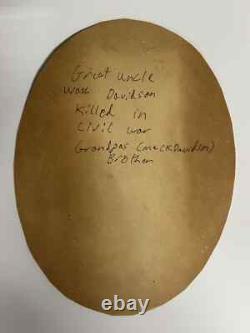 Great uncle
Wash Davidson
Killed in
Civil war
Grandpas (Mack Davidson)
Brother
ebay